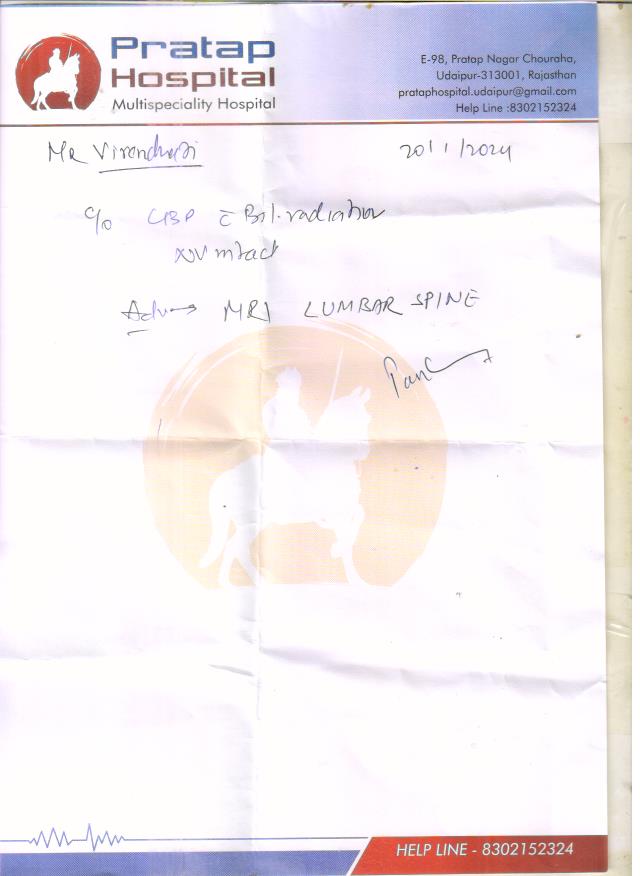 Pratap
Hospital
Multispeciality Hospital
E-98, Pratap Nagar Chouraha,
Udaipur-313001, Rajasthan
prataphospital.udaipur@gmail.com
Help Line :8302152324
MR
20/1/2024
c/o LBP c̄ B/L radiation
intact
Adv → MRI LUMBAR SPINE
HELP LINE - 8302152324